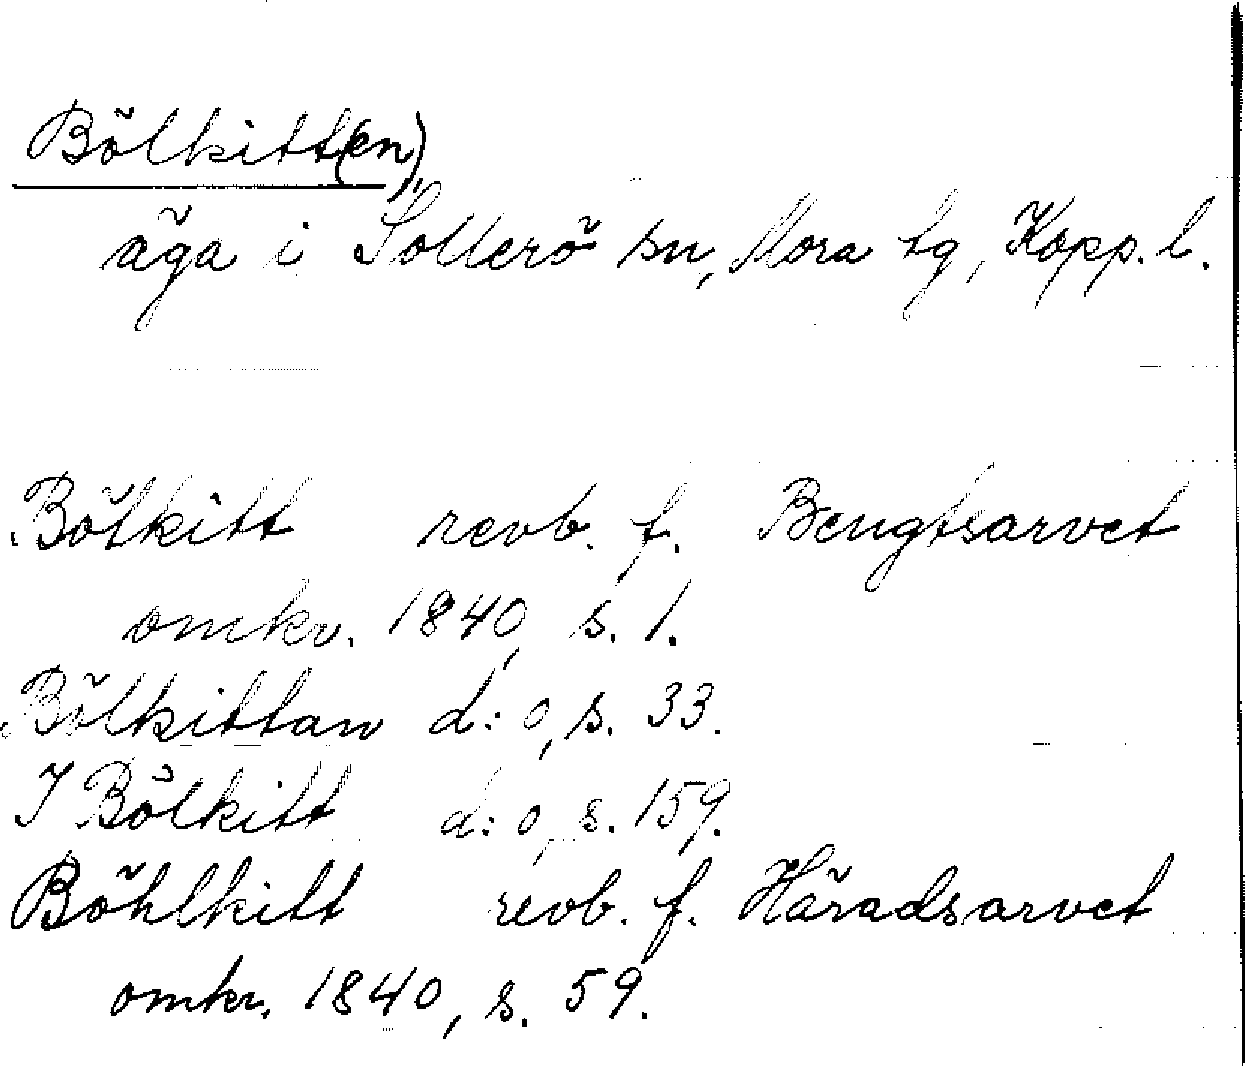 Bölkitt(en),
äga i Sollerö sn, Mora tg, Kopp. l.
Bölkitt revb. f. Bengtsarvet
omkr. 1840, s. 1.
Bölkittan d:o, s. 33.
I Bölkitt d:o, s. 159.
Böhlkitt revb. f. Häradsarvet
omkr. 1840, s. 59.